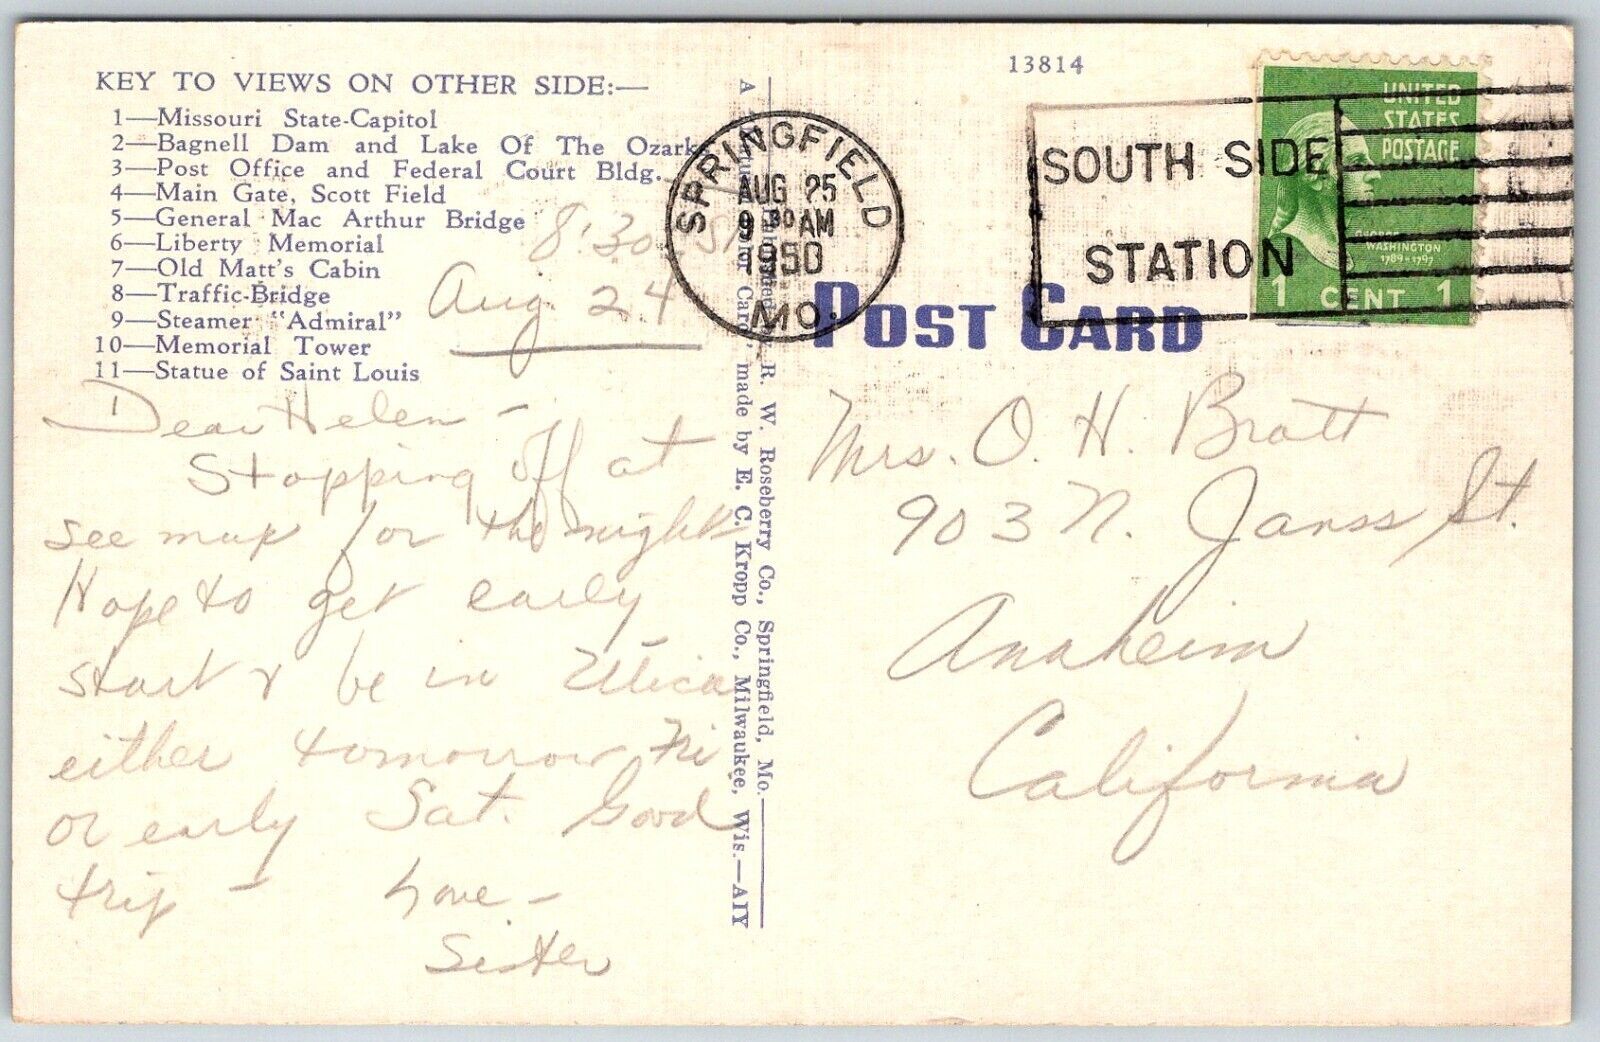 KEY TO VIEWS ON OTHER SIDE:—
1—Missouri State-Capitol
2—Bagnell Dam and Lake Of The Ozarks
3—Post Office and Federal Court Bldg.
4—Main Gate, Scott Field
5—General Mac Arthur Bridge
6—Liberty Memorial
7—Old Matt's Cabin
8—Traffic-Bridge
9—Steamer "Admiral"
10—Memorial Tower
11—Statue of Saint Louis
8:30
Aug. 24
Dear Helen –
Stopping off at
see map for the night
Hope to get early
start & be in Utica
either tomorrow Fri
or early Sat. Good
trip – Love –
Sister
R. W. Roseberry Co., Springfield, Mo.—
Color Card," made by E. C. Kropp Co., Milwaukee, Wis.—AIY
13814
SPRINGFIELD
AUG 25
9 30 AM
1950
MO.
SOUTH SIDE
STATION
UNITED
STATES
POSTAGE
GEORGE
WASHINGTON
1789-1797
1 CENT 1
POST CARD
Mrs. O. H. Bratt
903 N. Janss St.
Anaheim
California